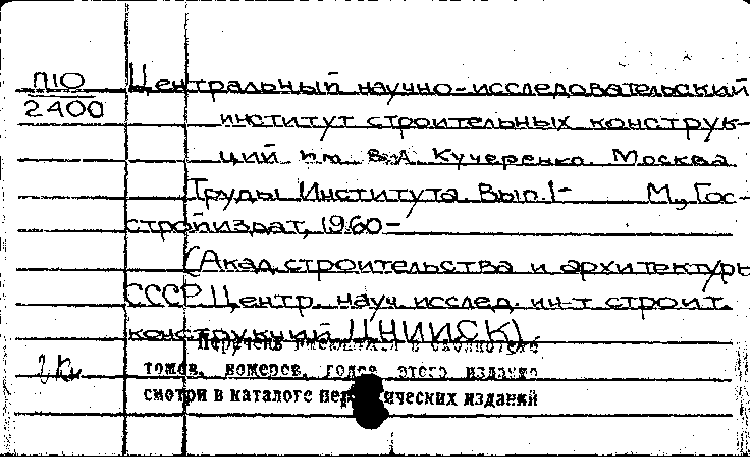 П10
2400
Центральный научно-исследовательский
институт строительных конструк-
ций им. В.А. Кучеренко. Москва.
Труды Института. Вып. 1- М., Гос-
стройиздат, 1960-
(Акад. строительства и архитектуры
СССР. Центр. науч. исслед. ин-т строит.
конструкций ЦНИИСК)
Перечень имеющихся в библиотеке
томов, номеров, годов этого издания
смотри в каталоге периодических изданий